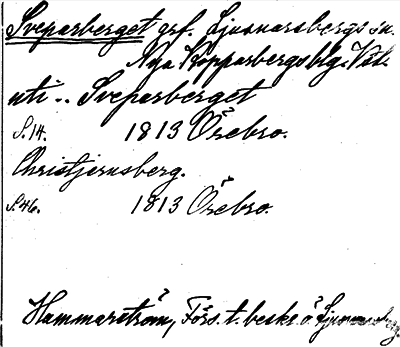 Sveparberget grf. Ljusnarsbergs sn.
Nya Kopparbergs blg. Väl.
uti .. Sveparberget
S. 14. 1813 Örebro.
Christjernsberg.
S. 46. 1813 Örebro.
Hammarström, Förs. t. beskr. ö. Ljusnarsberg.